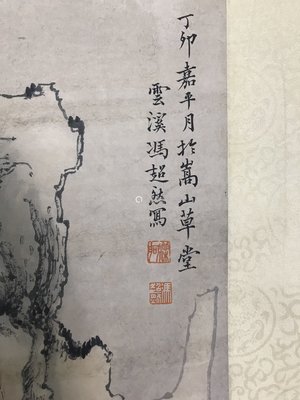 丁卯嘉平月於嵩山草堂
雲溪馮超然寫